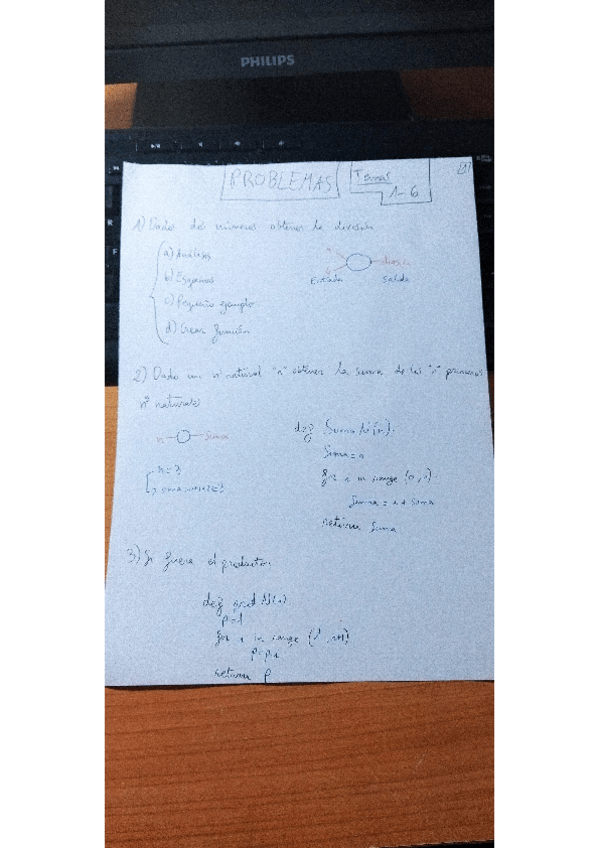 PHILIPS
PROBLEMAS
Temas
1-6
1) Dados dos números obtener la división
a) Análisis
b) Esquema
c) Pequeño ejemplo
d) Crear función
Entrada
salida
2) Dado un nº natural "n" obtener la suma de los "n" primeros
nº naturales
n
suma
def SumaN(n):
n=3
for i in range (0, n):
suma = i + suma
return suma
3) Si fuera el producto:
def prodN(n)
p=1
for i in range (1, n+1)
return p